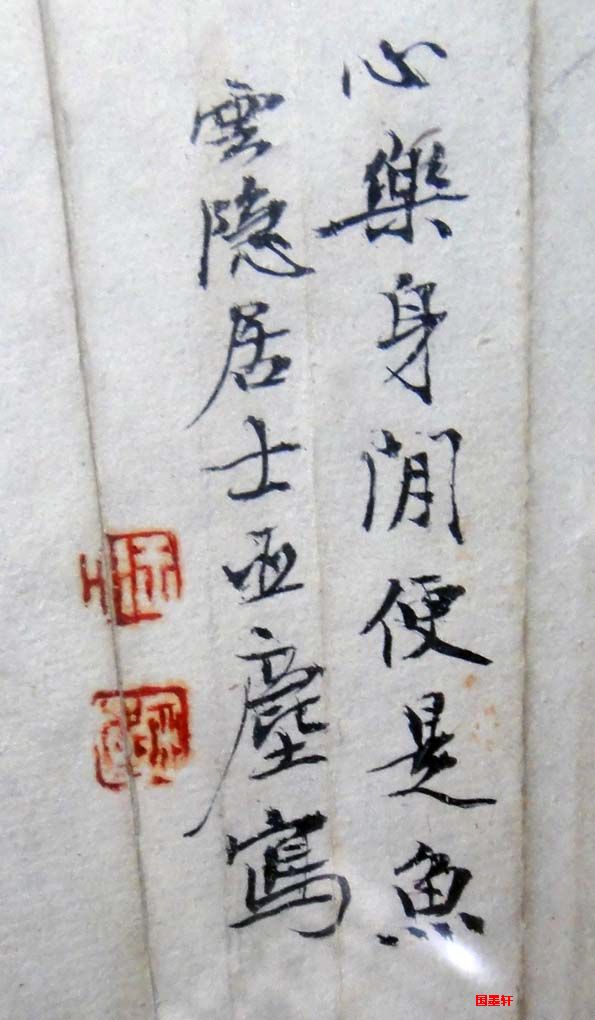 心樂身閒便是魚
雲隱居士亚塵寫
国墨轩